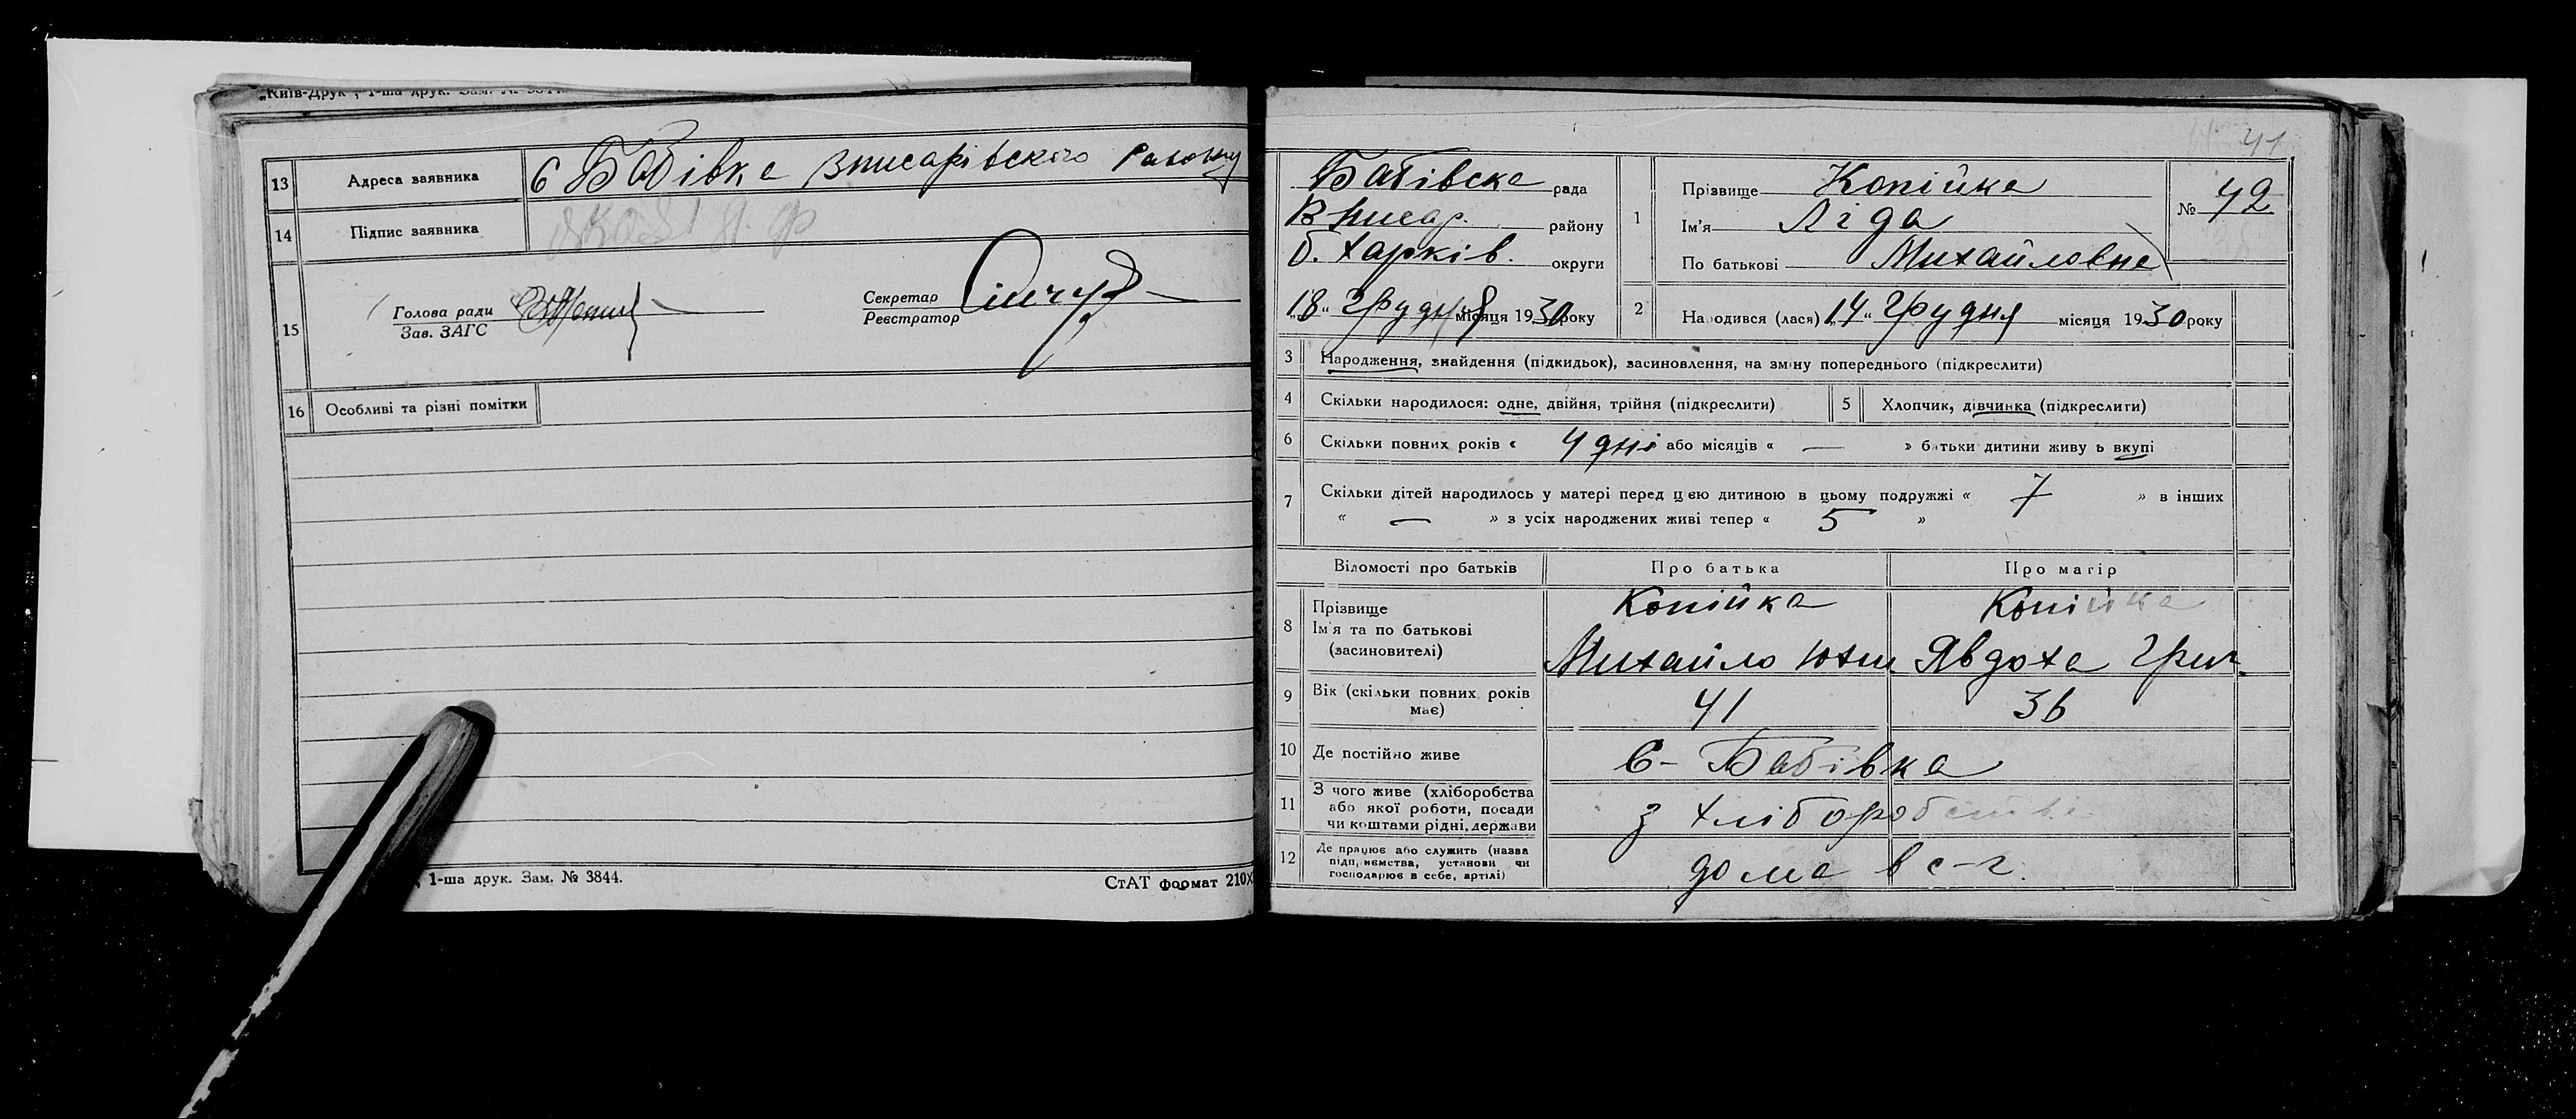 „Київ-Друк", 1-ша друк. Зам. №
13 Адреса заявника с Бабівка Вписарівского Району
14 Підпис заявника
15 Голова ради
Зав. ЗАГС
Секретар
Реєстратор
16 Особливі та різні помітки
1-ша друк. Зам. № 3844.
СтАТ формат 210X
41
Бабівска рада
В Писар. району
б. Харків. округи
„18" Грудня місяця 1930 року
1 Прізвище Копійка
Ім'я Ліда
По батькові Михайловна
№ 42
2 Народився (лася) „14" Грудня місяця 1930 року
3 Народження, знайдення (підкидьок), засиновлення, на зміну попереднього (підкреслити)
4 Скільки народилося: одне, двійня, трійня (підкреслити)
5 Хлопчик, дівчинка (підкреслити)
6 Скільки повних років « 4 дні або місяців « — » батьки дитини живуть вкупі
7 Скільки дітей народилось у матері перед цією дитиною в цьому подружжі « 7 » в інших
« — » з усіх народжених живі тепер « 5 »
Відомості про батьків Про батька Про матір
8 Прізвище
Ім'я та по батькові
(засиновителі)
Копійка
Михайло Юхим
Копійка
Явдоха Григ
9 Вік (скільки повних років має) 41 36
10 Де постійно живе с- Бабівка
11 З чого живе (хліборобства
або якої роботи, посади
чи коштами рідні, держави
з хліборобства
12 Де працює або служить (назва
підприємства, установи чи
господарює в себе, артілі)
дома в с-г.